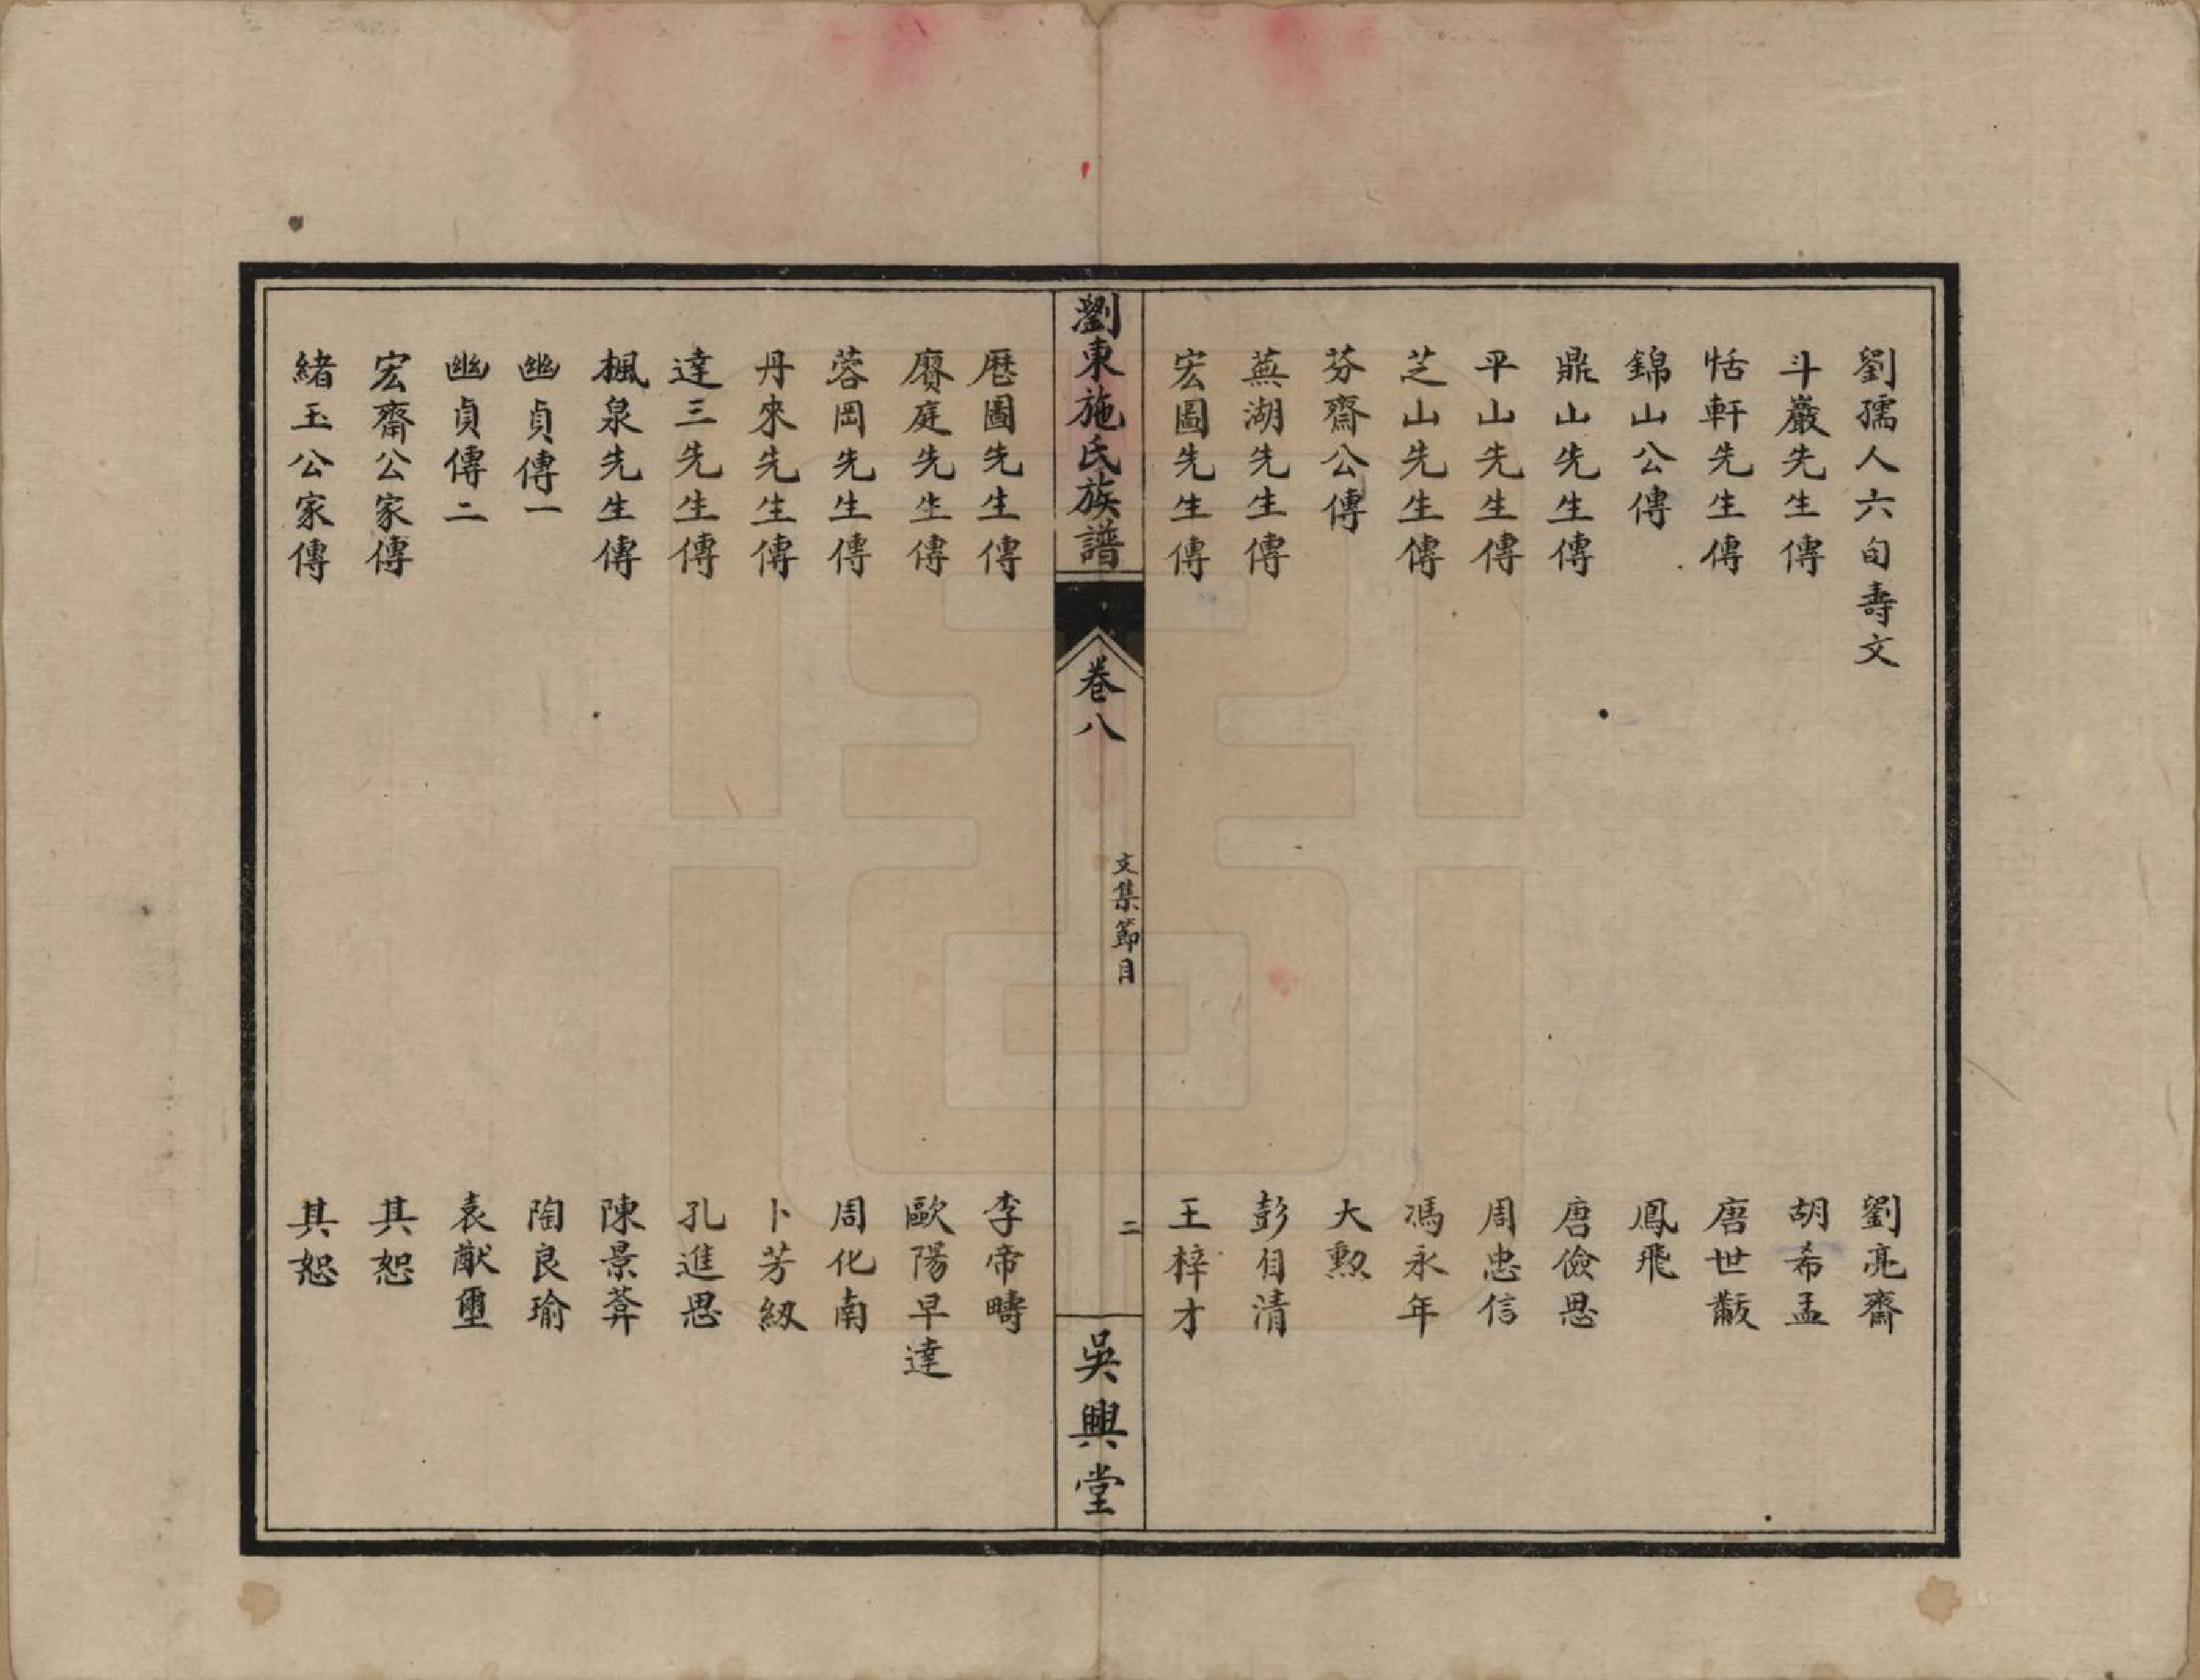 劉孺人六旬壽文 劉亮齋
斗巖先生傳 胡希孟
恬軒先生傳 唐世黻
錦山公傳 鳳飛
鼎山先生傳 唐儉思
平山先生傳 周忠信
芝山先生傳 馮永年
芬齋公傳 大勲
蕪湖先生傳 彭自清
宏圖先生傳 王梓才
劉東施氏族譜
卷八
文集節目
二
吳興堂
歷圖先生傳 李帝疇
賡庭先生傳 歐陽早達
蓉岡先生傳 周化南
丹來先生傳 卜芳紉
達三先生傳 孔進思
楓泉先生傳 陳景莽
幽貞傳一 陶良瑜
幽貞傳二 袁猷璽
宏齋公家傳 其恕
緒玉公家傳 其恕